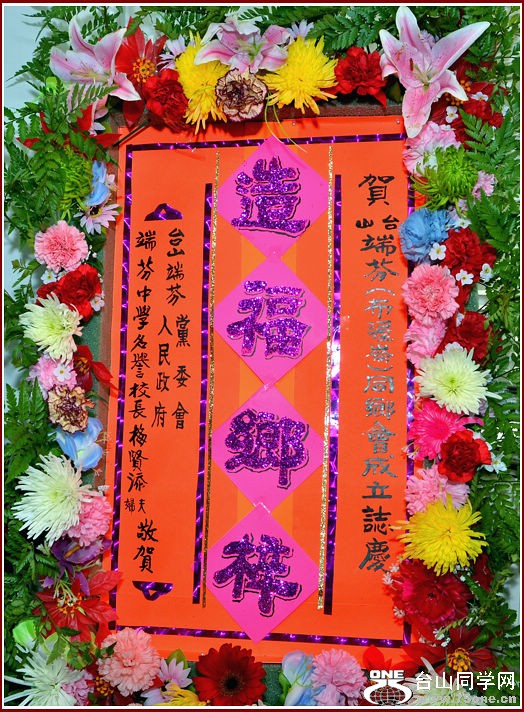 賀
台山端芬同鄉會成立誌慶
造福鄉梓
台山端芬黨委會
人民政府
端芬中學名譽校長梅賢添夫婦敬賀
ONE
台山同学网